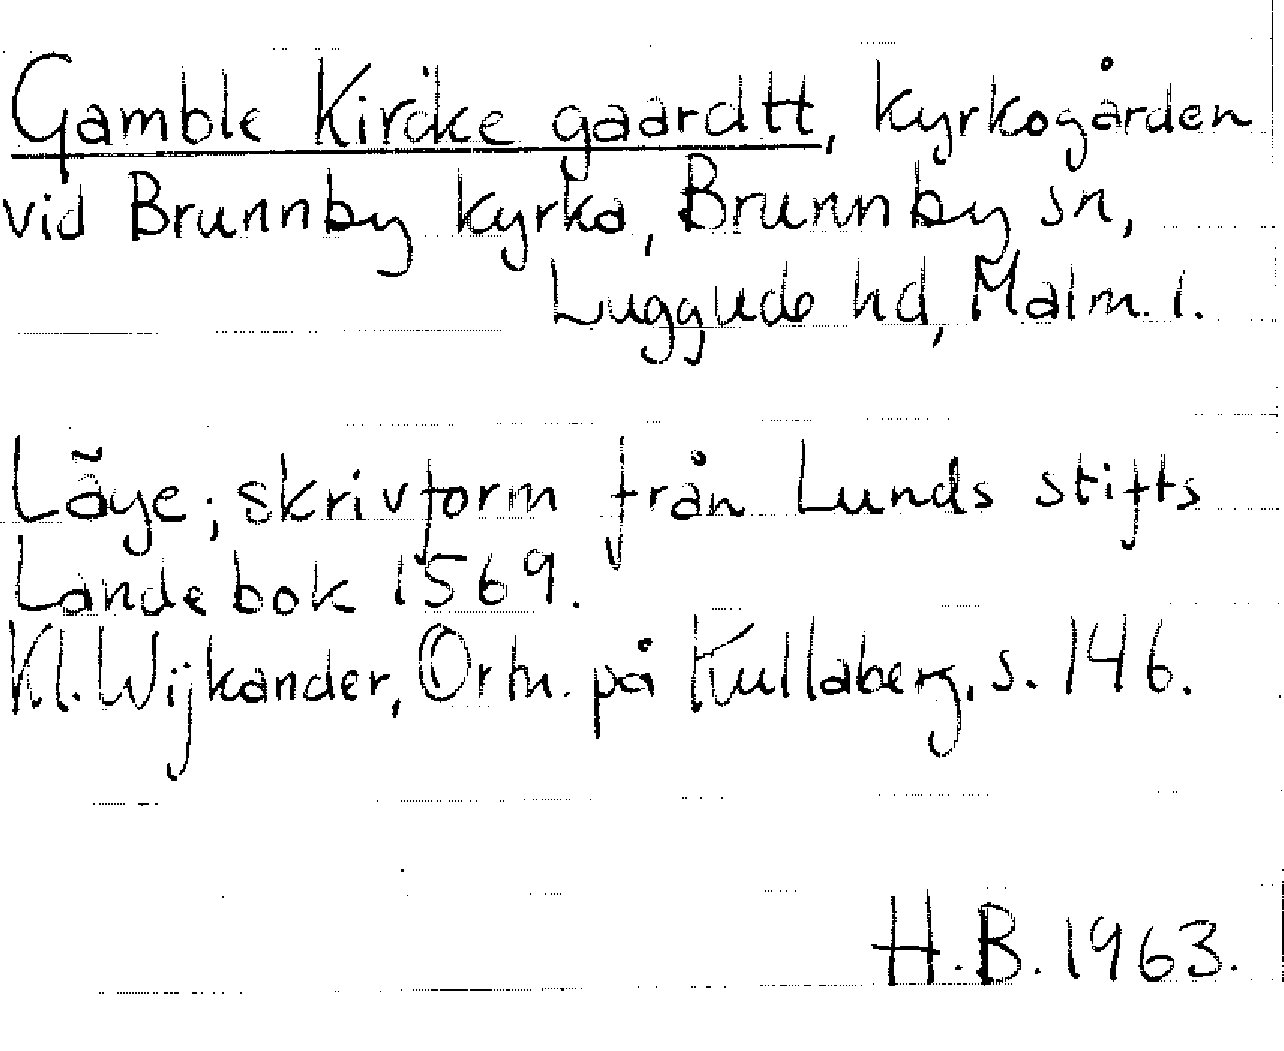 Gamble Kircke gaardtt, kyrkogården
vid Brunnby kyrka, Brunnby sn,
Luggude hd, Malm. l.
Läge; skrivform från Lunds stifts
Landebok 1569.
Kl. Wijkander, Ortn. på Kullaberg, s. 146.
H.B. 1963.